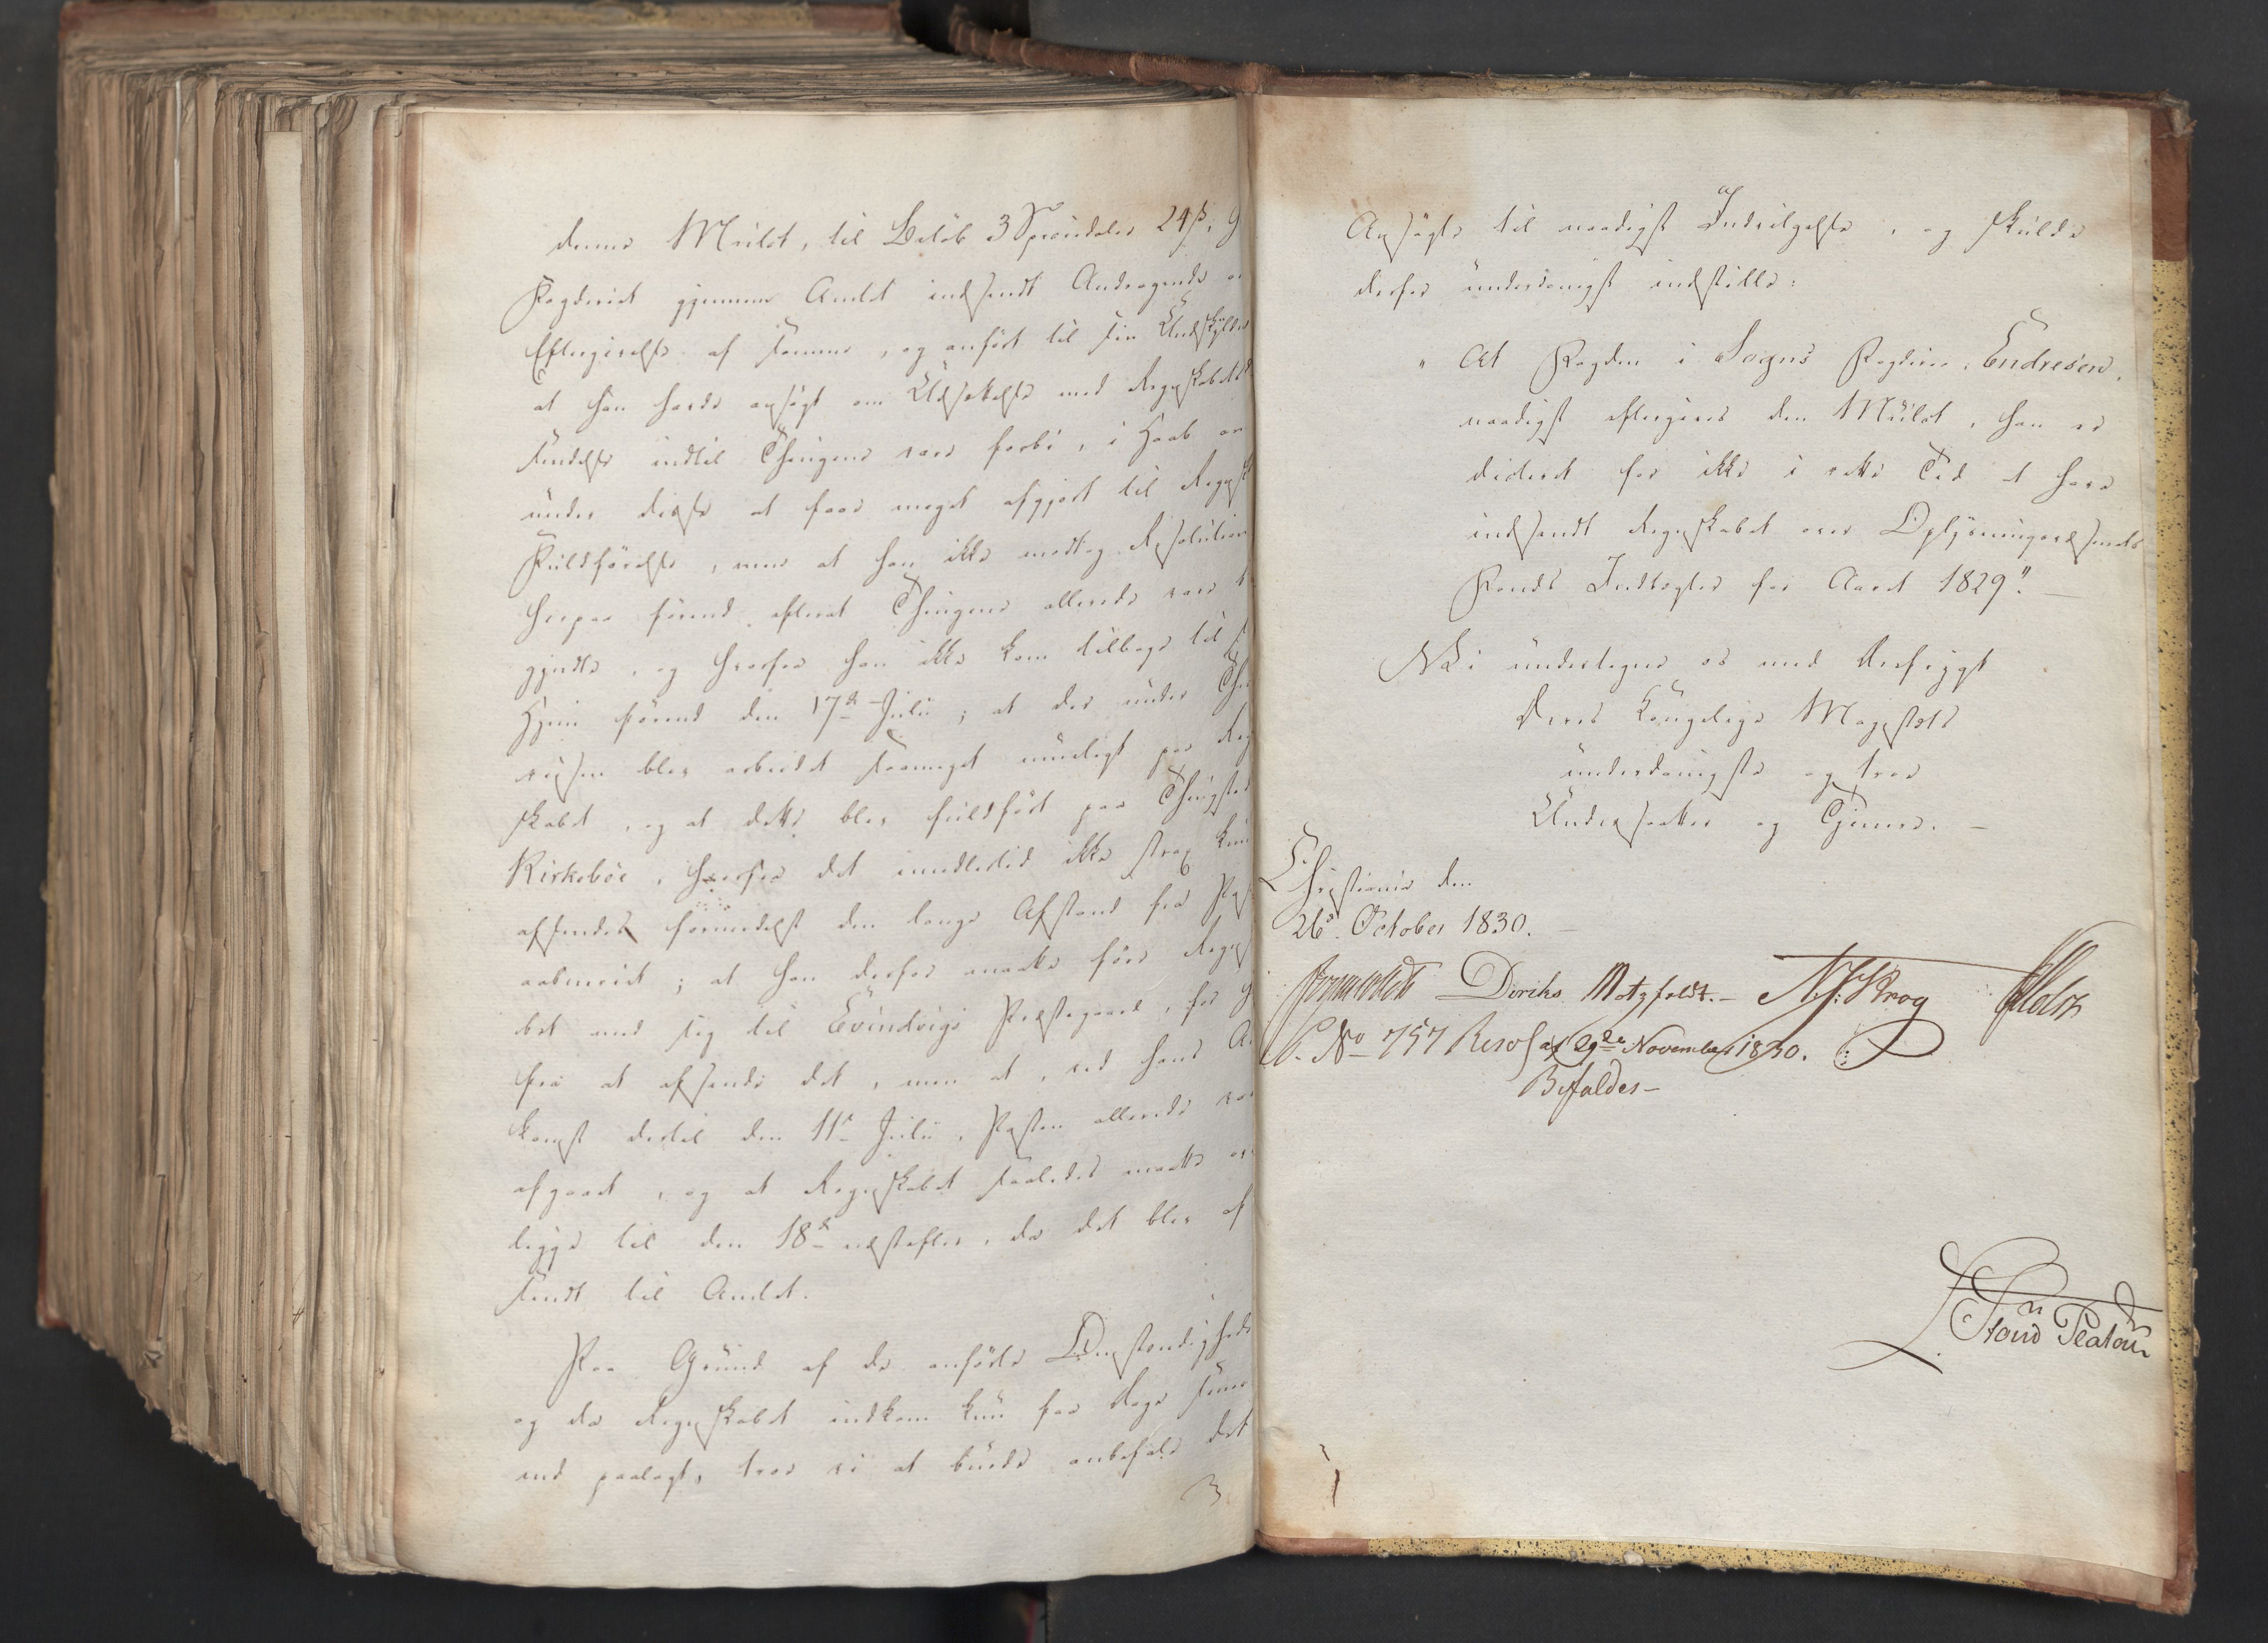 denne Mulct, til Beløb 3 Speciedaler 24 ß, g
Fogderiet gjennem Amtet indsendt Andragende o
Eftergivelse af samme, og anført til sin Undskyldni
at han havde ansøgt om Udsættelse med Regnskabets
Sendelse indtil Thingene vare forbi, i Haab om
under disse at faae meget afgjort til Regnsk
Fuldførelse, men at han ikke modtog Resolution
herpaa førend efterat Thingene allerede vare b
gyndte, og hvorfra han ikke kom tilbage til s
Hjem førend den 17de Julii; at der under Thi
reisen blev arbeidet saameget mueligt paa Reg
skabet, og at dette blev fuldført paa Thingstedet
Kirkebøe, hvorfra det imidlertid ikke strax kun
afsendes formedelst den lange Afstand fra Post
aabneriet; at han derfor maatte føre Regnsk
bet med sig til Evindvigs Præstegaard, for d
fra at afsende det, men at, ved hans An
komst dertil den 11te Julii, Posten allerede var
afgaaet, og at Regnskabet saaledes maatte ov
ligge til den 18de næstefter, da det blev af
sendt til Amtet.
Paa Grund af de anførte Omstændighede
og da Regnskabet indkom kun faa Dage sene
end paalagt, troe vi at burde anbefale det
Ansøgte til naadigst Indvilgelse, og skulde
derfor underdanigst indstille:
"At Fogden i Sogns Fogderie, Endresen,
naadigst eftergives den Mulct, han er
dicteret for ikke i rette Tid at have
indsendt Regnskabet over Oplysningsvæsenets
Fonds Indtægter for Aaret 1829". —
Vi undertegne os med Ærefrygt
Deres Kongelige Majestæts
underdanigste og troe
Undersaatter og Tjenere. —
Christiania den
26de October 1830.
Diriks Motzfeldt. — Krog
P. No 757 Resol af 29de November 1830.
Bifaldes —